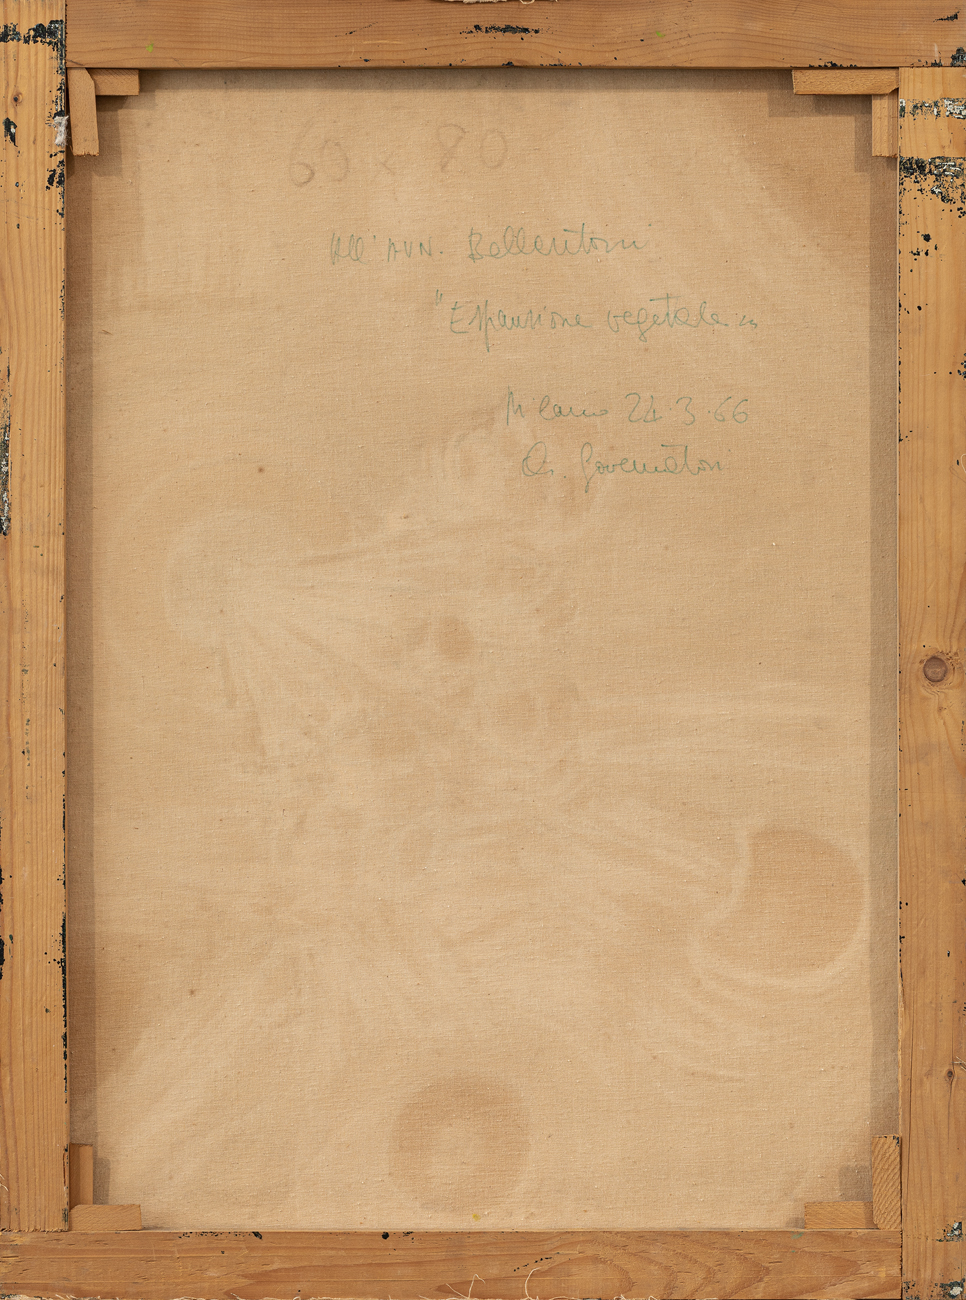 60 x 80
All'Avv. Bellentani
"Espansione vegetale"
Milano 24.3.66
G. Governatori